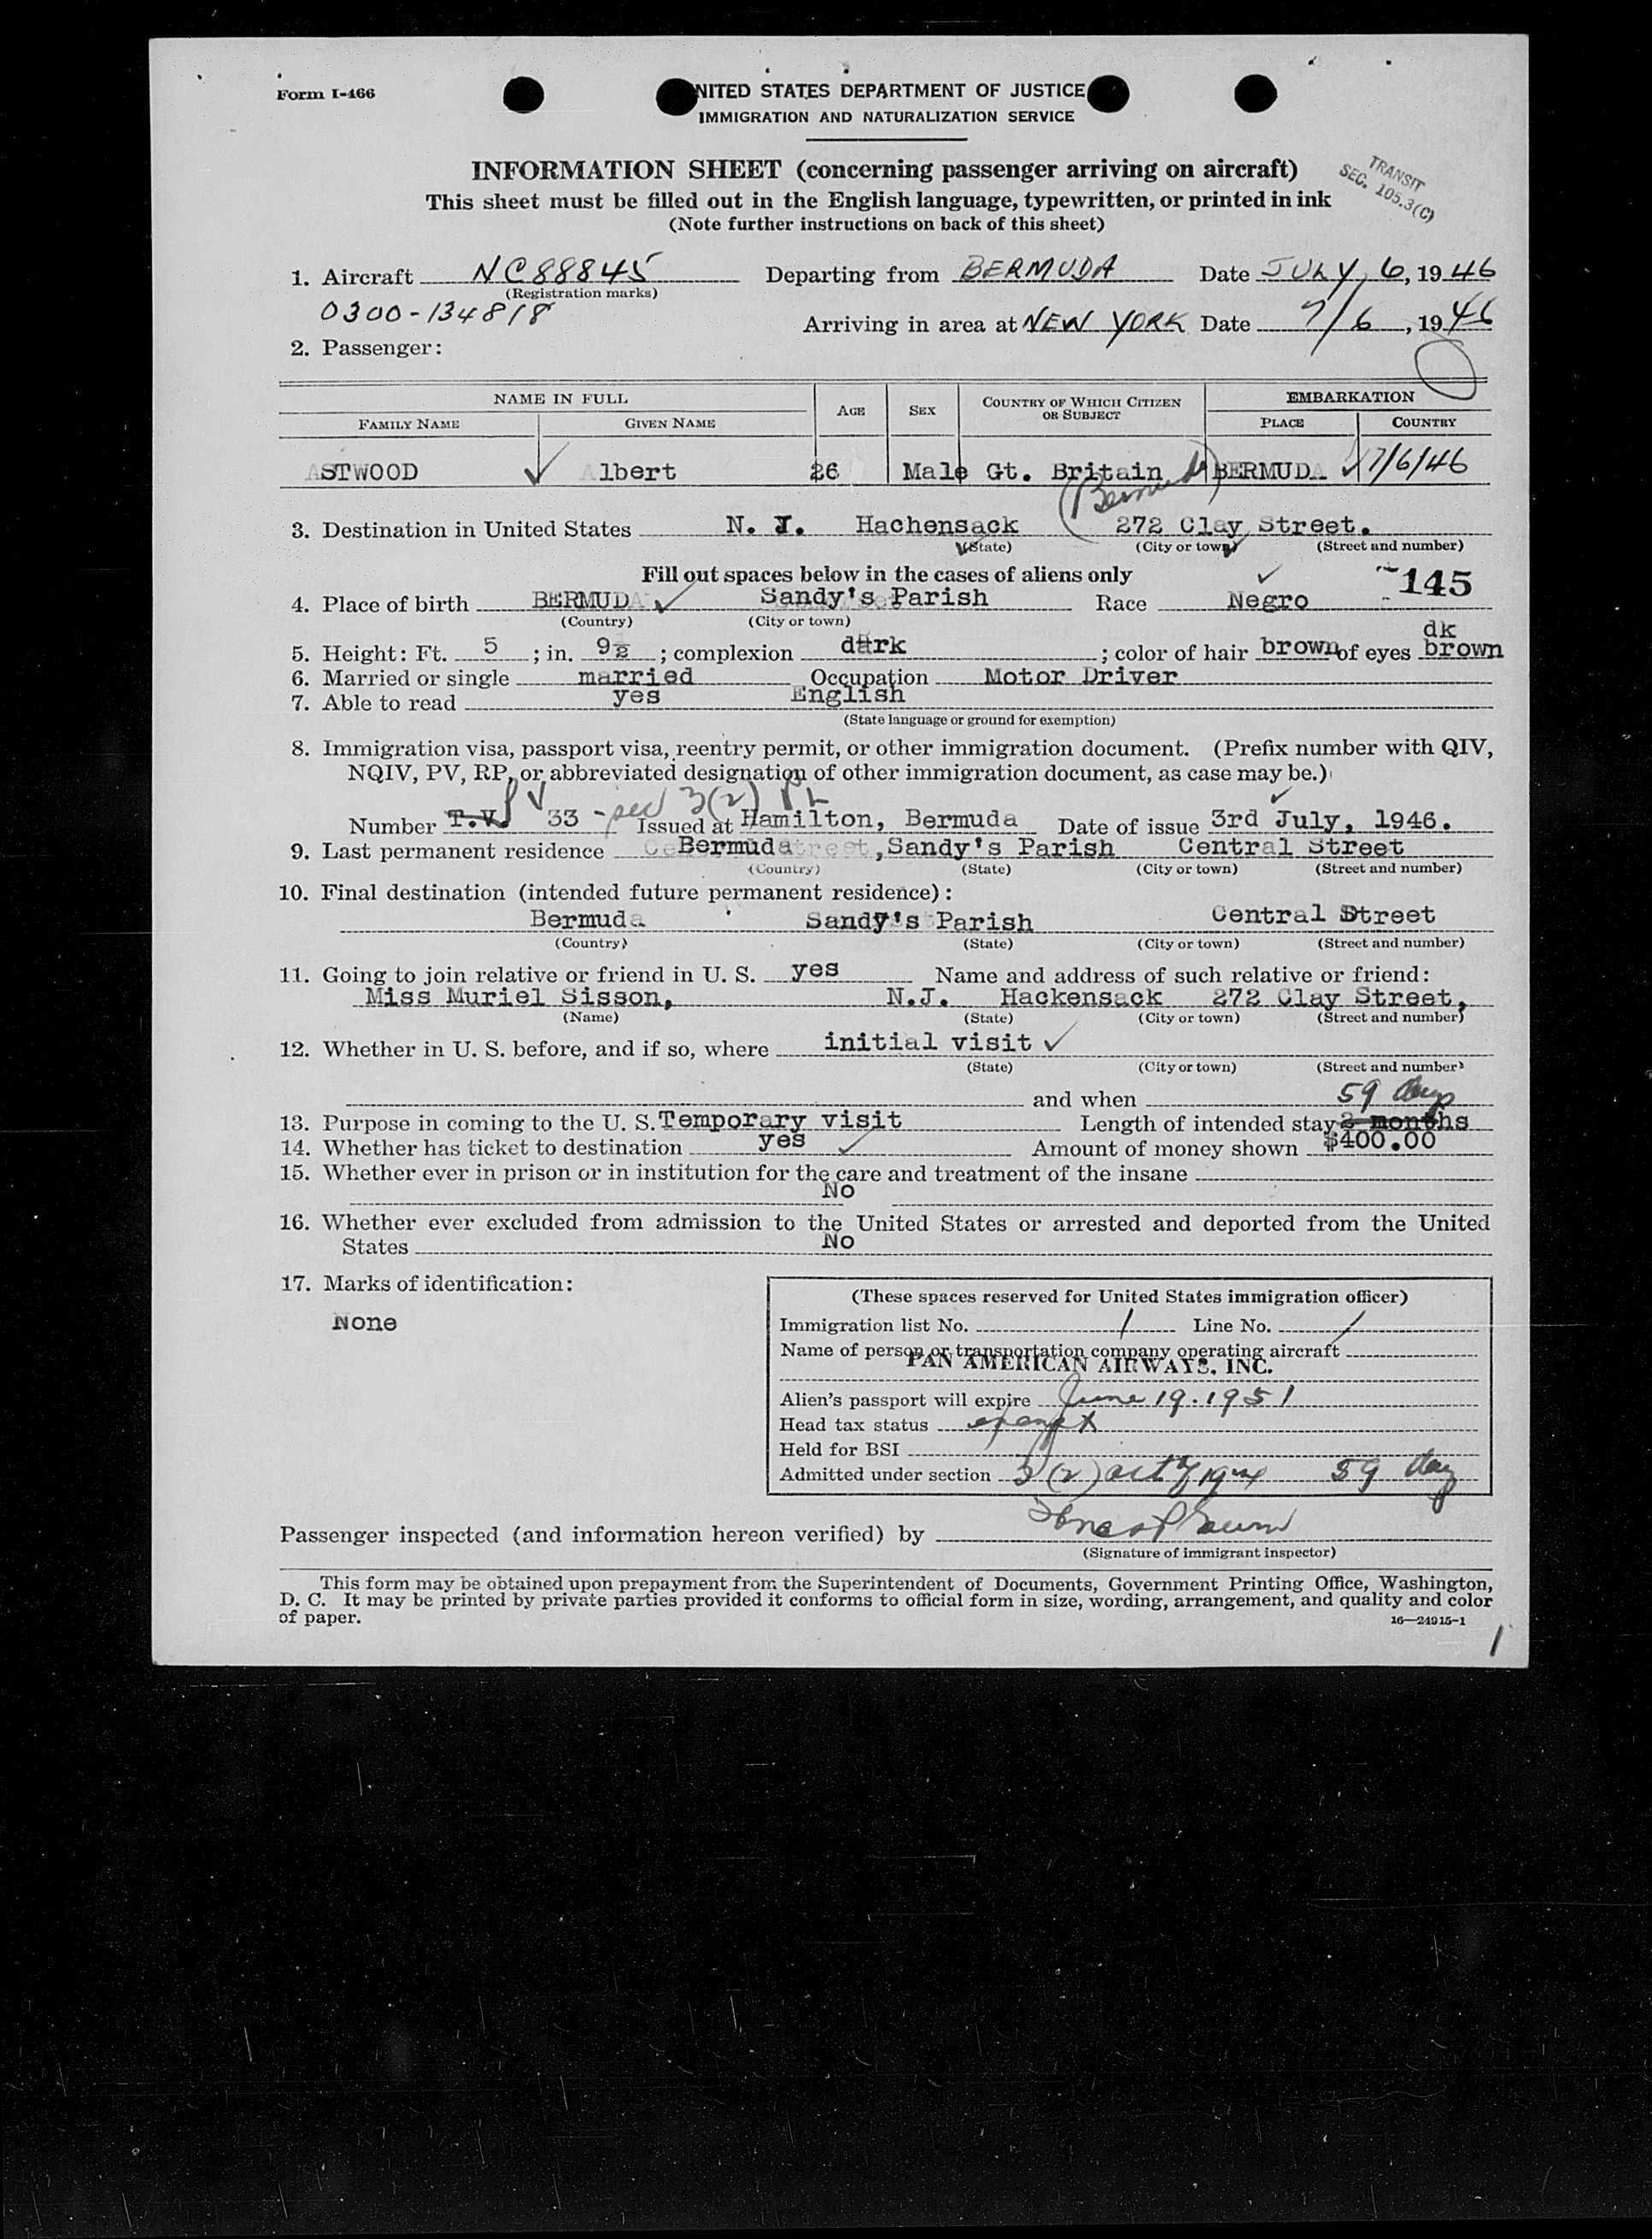 Form I-466
UNITED STATES DEPARTMENT OF JUSTICE
IMMIGRATION AND NATURALIZATION SERVICE
INFORMATION SHEET (concerning passenger arriving on aircraft)
TRANSIT
SEC. 105.3(C)
This sheet must be filled out in the English language, typewritten, or printed in ink
(Note further instructions on back of this sheet)
1. Aircraft NC88845 Departing from BERMUDA Date JULY, 6, 1946
(Registration marks)
0300-134818
Arriving in area at NEW YORK Date 7/6, 1946
2. Passenger:
NAME IN FULL AGE SEX COUNTRY OF WHICH CITIZEN OR SUBJECT EMBARKATION
FAMILY NAME GIVEN NAME PLACE COUNTRY
ASTWOOD Albert 26 Male Gt. Britain BERMUDA 7/6/46
(Bermuda)
3. Destination in United States N. J. Hachensack 272 Clay Street.
(State) (City or town) (Street and number)
Fill out spaces below in the cases of aliens only
145
4. Place of birth BERMUDA Sandy's Parish Race Negro
(Country) (City or town)
dk
5. Height: Ft. 5; in. 9½; complexion dark; color of hair brown of eyes brown
6. Married or single married Occupation Motor Driver
7. Able to read yes English
(State language or ground for exemption)
8. Immigration visa, passport visa, reentry permit, or other immigration document. (Prefix number with QIV,
NQIV, PV, RP, or abbreviated designation of other immigration document, as case may be.)
Number T.V. PV 33 - sec 3(2) Issued at Hamilton, Bermuda Date of issue 3rd July, 1946.
9. Last permanent residence Bermuda, Sandy's Parish Central Street
(Country) (State) (City or town) (Street and number)
10. Final destination (intended future permanent residence):
Bermuda Sandy's Parish Central Street
(Country) (State) (City or town) (Street and number)
11. Going to join relative or friend in U. S. yes Name and address of such relative or friend:
Miss Muriel Sisson, N.J. Hackensack 272 Clay Street,
(Name) (State) (City or town) (Street and number)
12. Whether in U. S. before, and if so, where initial visit
(State) (City or town) (Street and number)
and when
59 days
13. Purpose in coming to the U. S. Temporary visit Length of intended stay 2 months
14. Whether has ticket to destination yes Amount of money shown $400.00
15. Whether ever in prison or in institution for the care and treatment of the insane
No
16. Whether ever excluded from admission to the United States or arrested and deported from the United
States No
17. Marks of identification:
None
(These spaces reserved for United States immigration officer)
Immigration list No. 1 Line No. 1
Name of person or transportation company operating aircraft
PAN AMERICAN AIRWAYS, INC.
Alien's passport will expire June 19. 1951
Head tax status exempt
Held for BSI
Admitted under section 3(2) act of 1924 59 days
Passenger inspected (and information hereon verified) by
(Signature of immigrant inspector)
This form may be obtained upon prepayment from the Superintendent of Documents, Government Printing Office, Washington,
D. C. It may be printed by private parties provided it conforms to official form in size, wording, arrangement, and quality and color
of paper.
16—24915-1
1